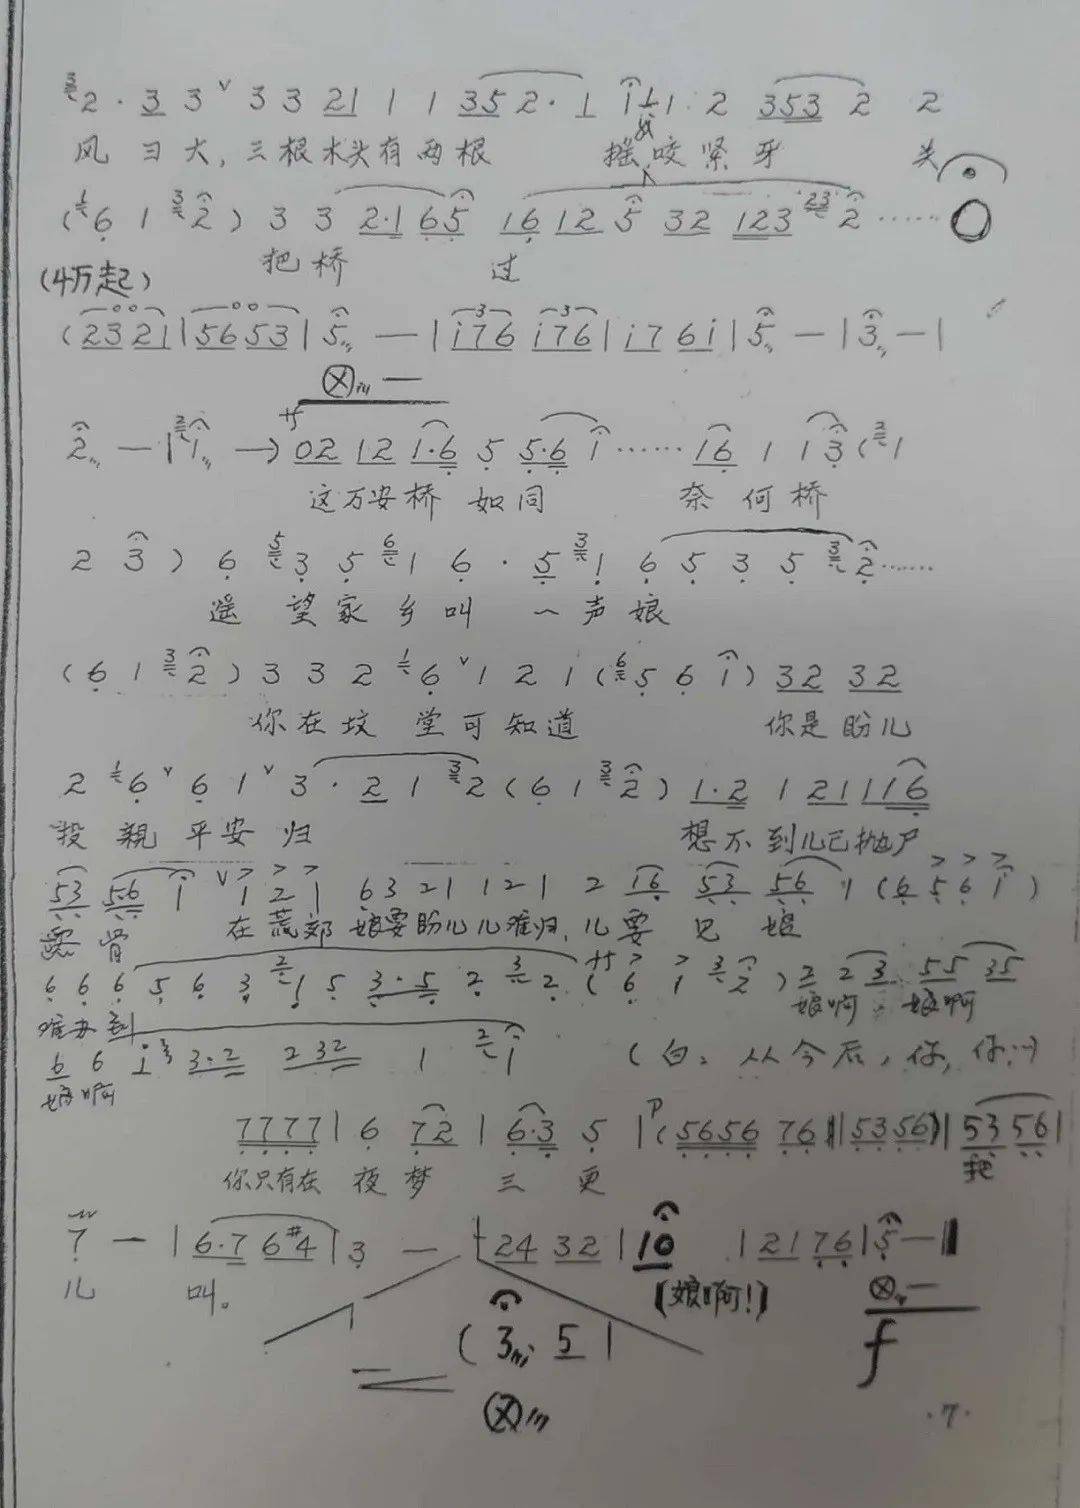 2 · 3 3 ˅ 3 3 21 1 1 35 2 · 1 i 1 1 · 2 353 2 2
风又大,三根木头有两根 摇 咬紧牙 头
( 6 1 2 ) 3 3 2·1 65 16 12 5 32 123 2 ……
把桥 过
(4万起)
( 2321 | 5653 | 5 — | i76 i76 | i7 6i | 5 — | 3 — |
2 — | 1 → 02 12 1·6 5 5·6 1 …… 16 1 1 3 ( 1
这万安桥 如同 奈何桥
2 3 ) 6 3 5 1 6 · 5 1 6 5 3 5 2 ……
遥望家乡叫一声娘
( 6 1 2 ) 3 3 2 6 ˅ 1 2 1 ( 5 6 i ) 32 32
你在坟堂可知道 你是盼儿
2 6 ˅ 6 1 ˅ 3 · 2 1 2 ( 6 1 2 ) 1·2 1 21 1 1 16
投亲平安归 想不到儿已抛尸
53 56 1 ˅ 1 2 1 63 21 1 2 1 2 16 53 56 1 ( 6 5 6 1 )
露骨 在荒郊 娘要盼儿儿难归,儿要见娘
6 6 6 5 6 3 1 5 3·5 2 2 ( 6 1 2 ) 2 2 3 55 35
难办到 娘啊 娘啊
6 6 i 3·2 232 1 1 (白:从今后,你,你…)
娘啊
7777 | 6 72 | 6·3 5 | P ( 5656 76 | 5356 ) | 53 56 |
你只有在 夜梦 三更 把
7 — | 6·7 6#4 | 3 — 24 32 | 10 | 21 76 | 5 — |
儿 叫。 (娘啊!)
( 3 5 |
f
· 7 ·